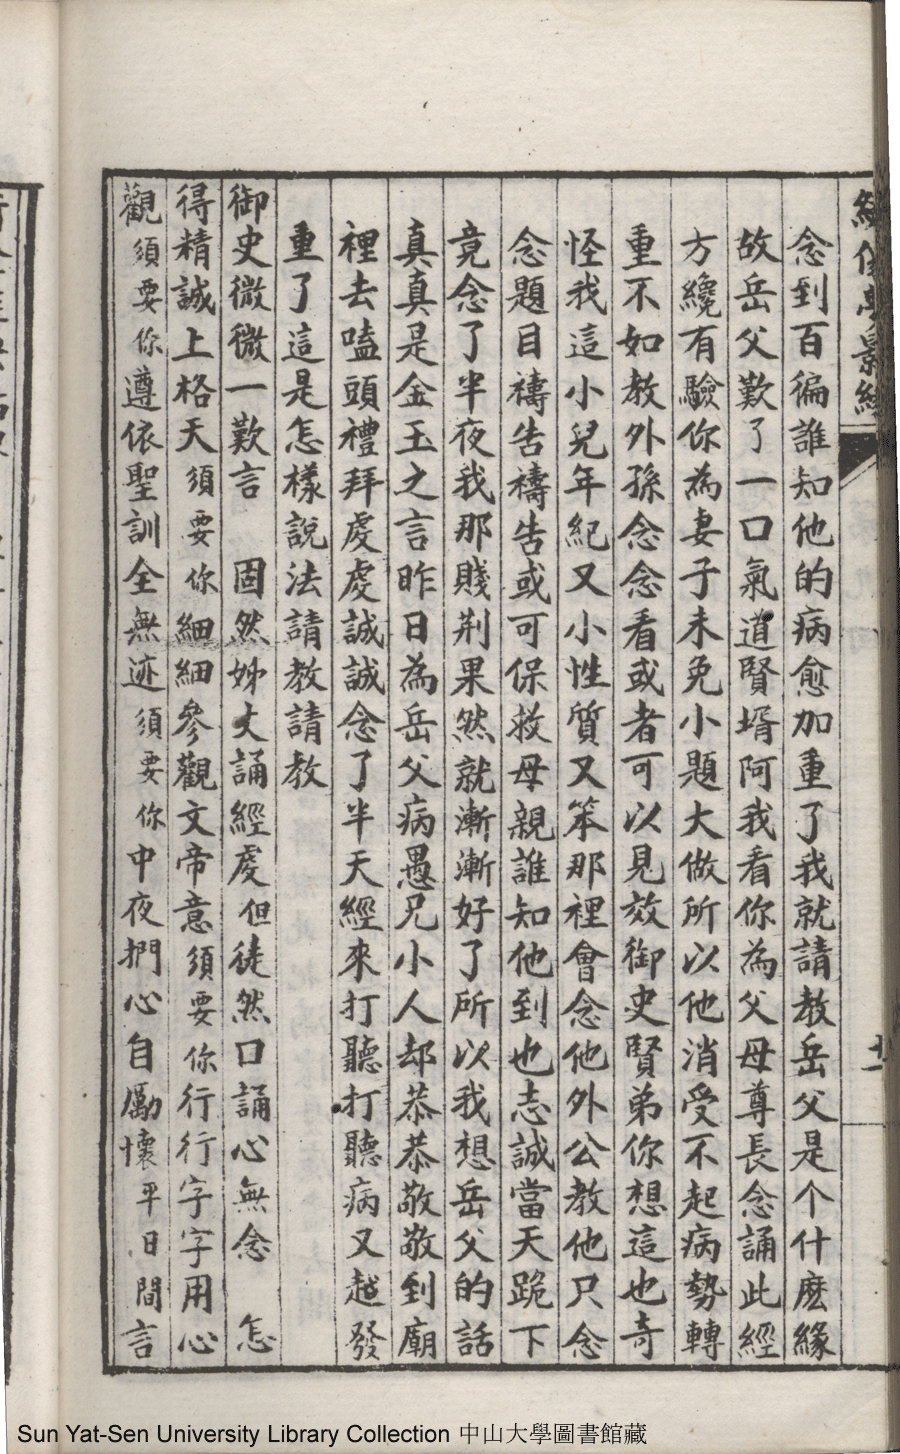 念到百徧誰知他的病愈加重了我就請教岳父是个什麽緣
故岳父歎了一口氣道賢壻阿我看你為父母尊長念誦此經
方纔有驗你為妻子未免小題大做所以他消受不起病勢轉
重不如教外孫念念看或者可以見效御史賢弟你想這也奇
怪我這小兒年紀又小性質又笨那裡會念他外公教他只念
念題目禱告禱告或可保救母親誰知他到也志誠當天跪下
竟念了半夜我那賤荆果然就漸漸好了所以我想岳父的話
真真是金玉之言昨日為岳父病愚兄小人却恭恭敬敬到廟
裡去嗑頭禮拜虔虔誠誠念了半天經來打聽打聽病又越發
重了這是怎樣說法請教請教
御史微微一歎言　固然姊丈誦經虔但徒然口誦心無念　怎
得精誠上格天須要你細細參觀文帝意須要你行行字字用心
觀須要你遵依聖訓全無迹須要你中夜捫心自勵懷平日間言
Sun Yat-Sen University Library Collection 中山大學圖書館藏